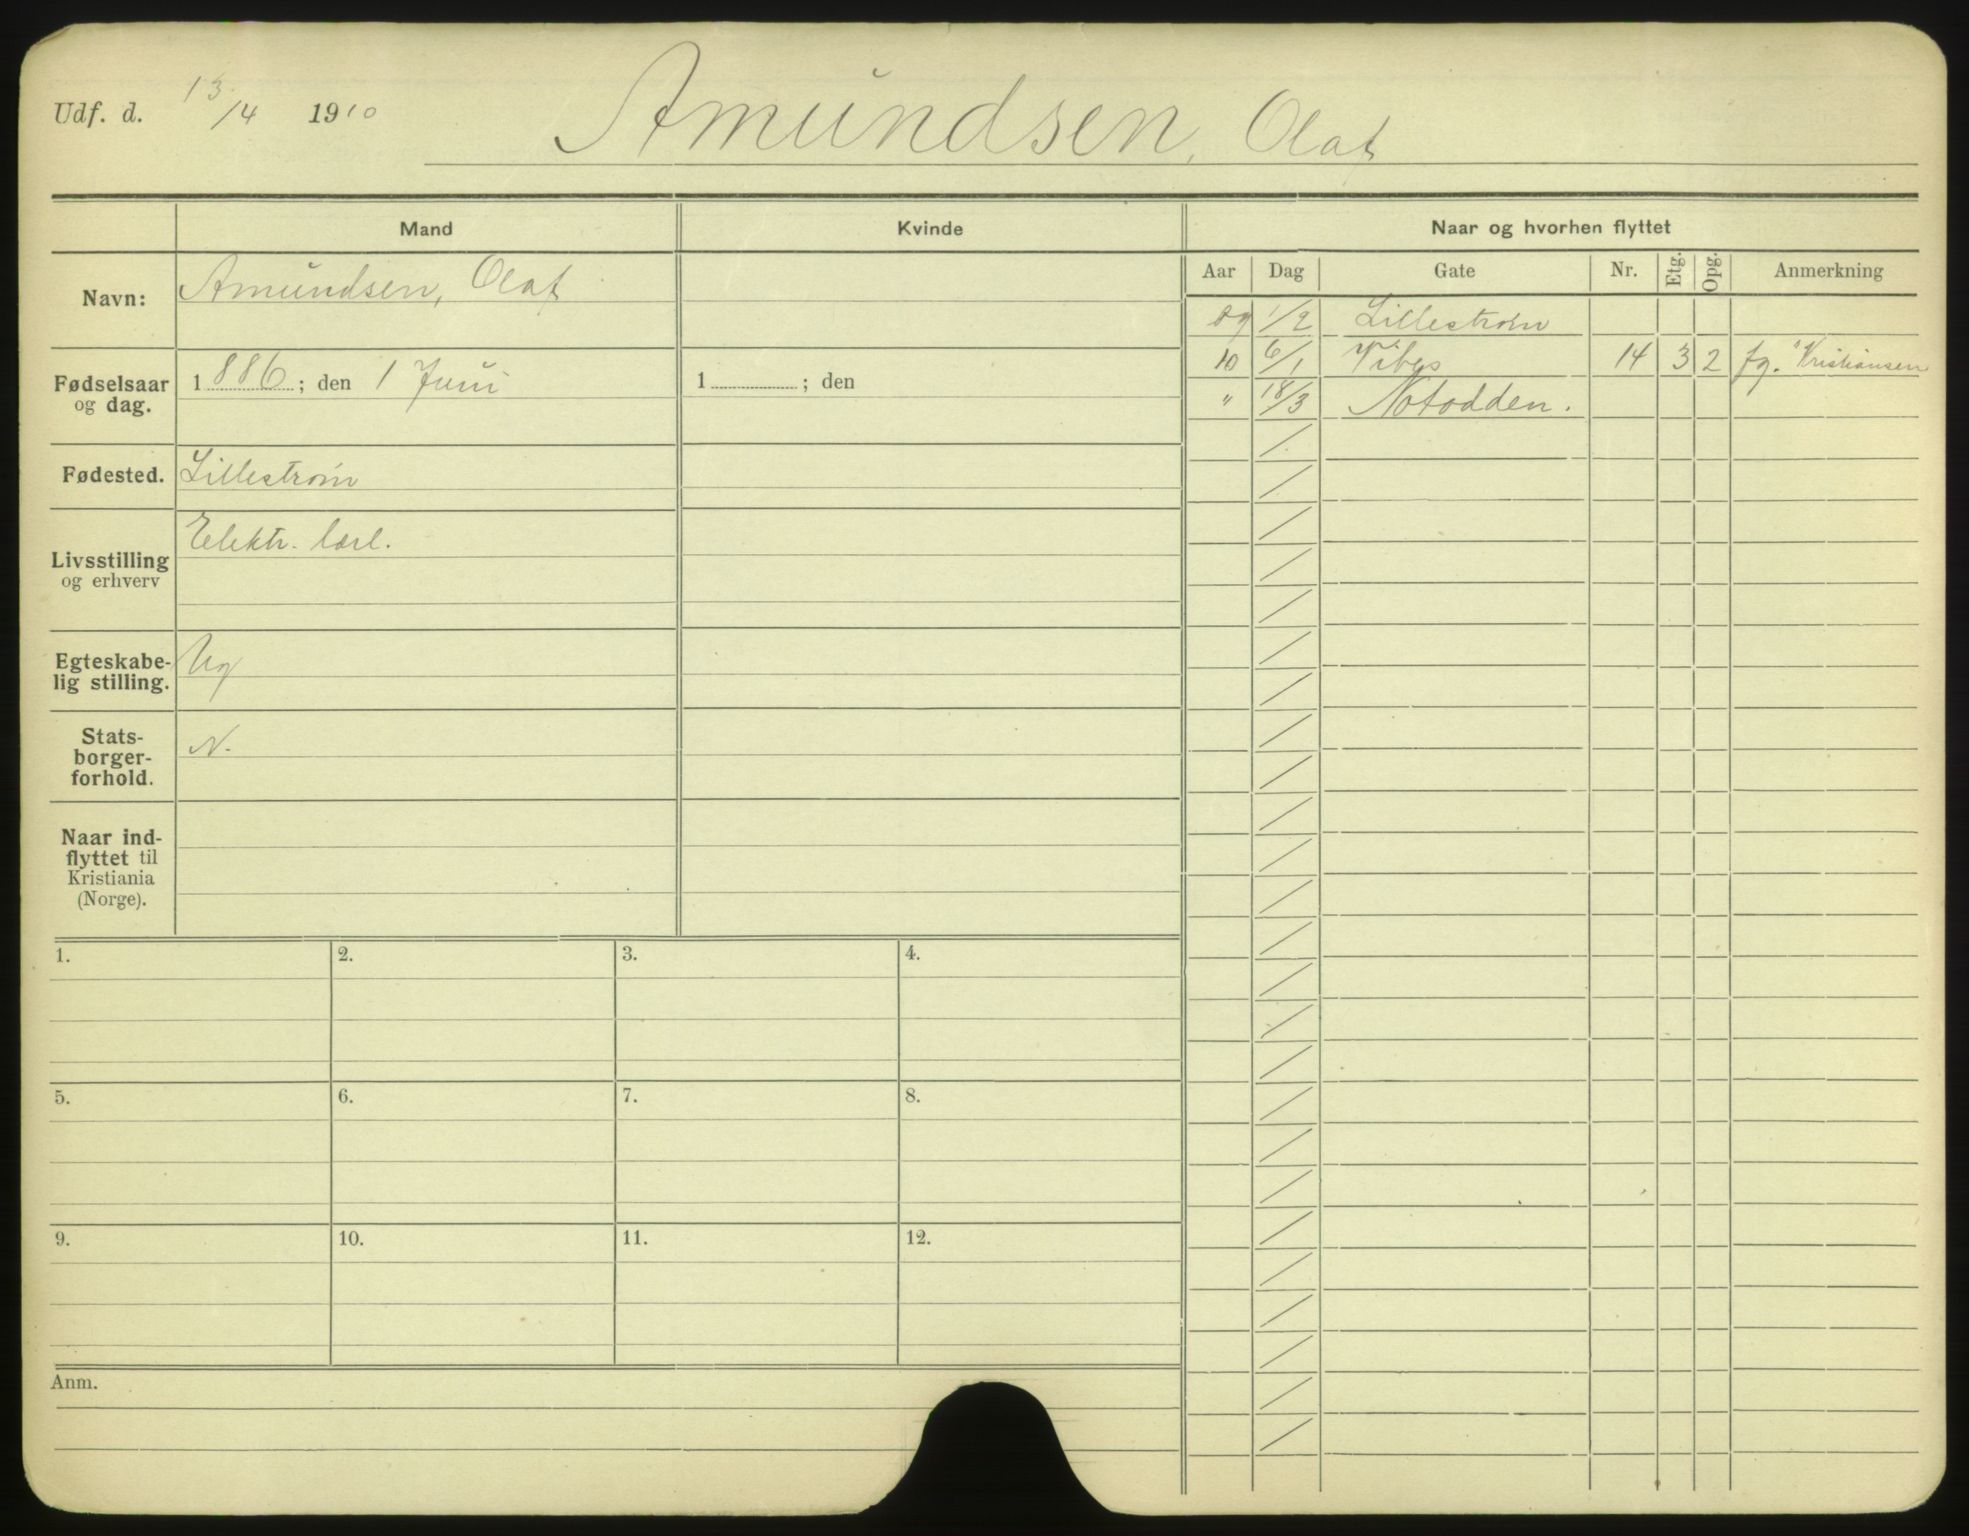 Udf. d. 13/4 1910 Amundsen, Olaf
Mand Kvinde Naar og hvorhen flyttet
Aar Dag Gate Nr. Etg. Opg. Anmerkning
Navn: Amundsen, Olaf
09 1/2 Lillestrøm
10 6/1 Vibes 14 3 2 fg. "Kristiansen
" 18/3 Notodden.
Fødselsaar
og dag.
1886; den 1 Juni
1 ; den
Fødested. Lillestrøm
Livsstilling
og erhverv
Elektr. lærl.
Egteskabe-
lig stilling.
Ug
Stats-
borger-
forhold.
N.
Naar ind-
flyttet til
Kristiania
(Norge).
1. 2. 3. 4.
5. 6. 7. 8.
9. 10. 11. 12.
Anm.